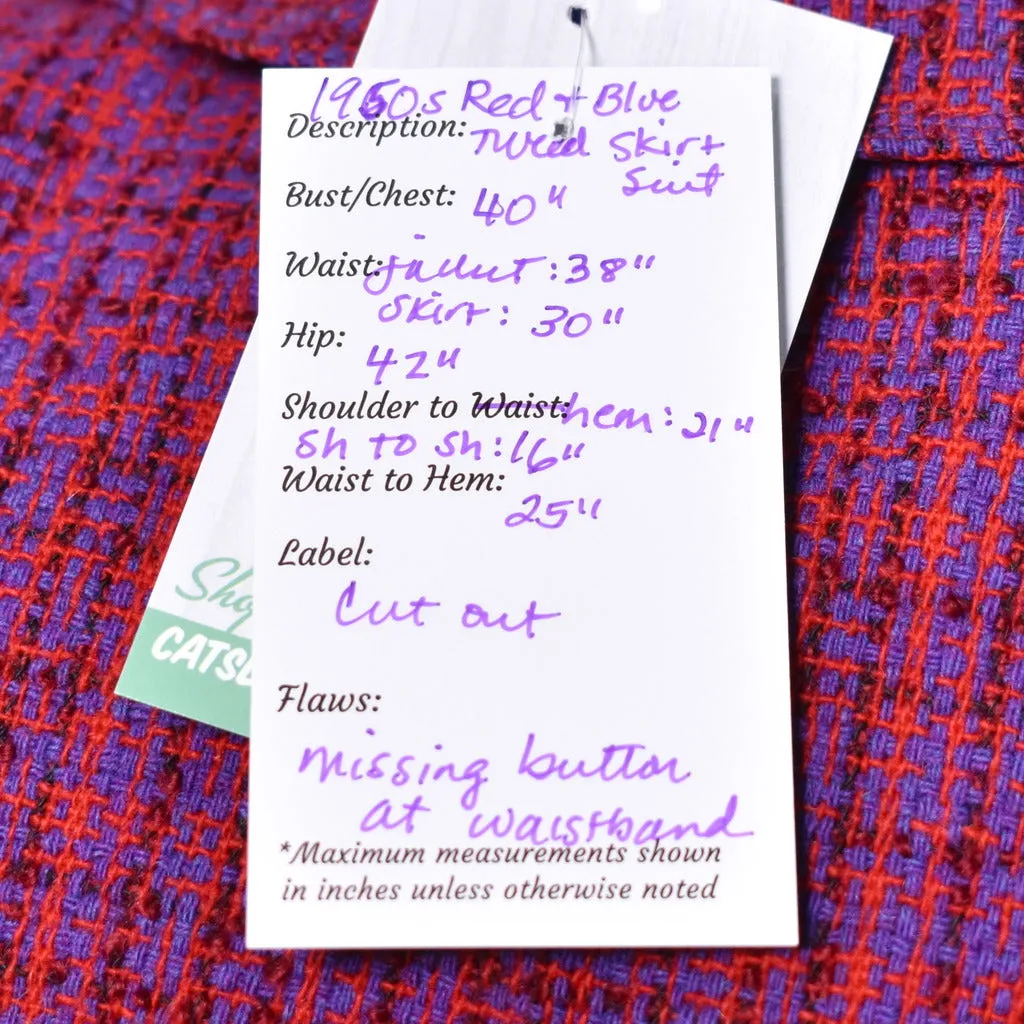 1960s Red + Blue
Description: Tweed Skirt
Suit
Bust/Chest: 40"
Waist: jacket: 38"
skirt: 30"
Hip:
42"
Shoulder to Waist: hem: 21"
sh to sh: 16"
Waist to Hem:
25"
Label:
Cut out
Flaws:
missing button
at waistband
*Maximum measurements shown
in inches unless otherwise noted
Shop
CATS